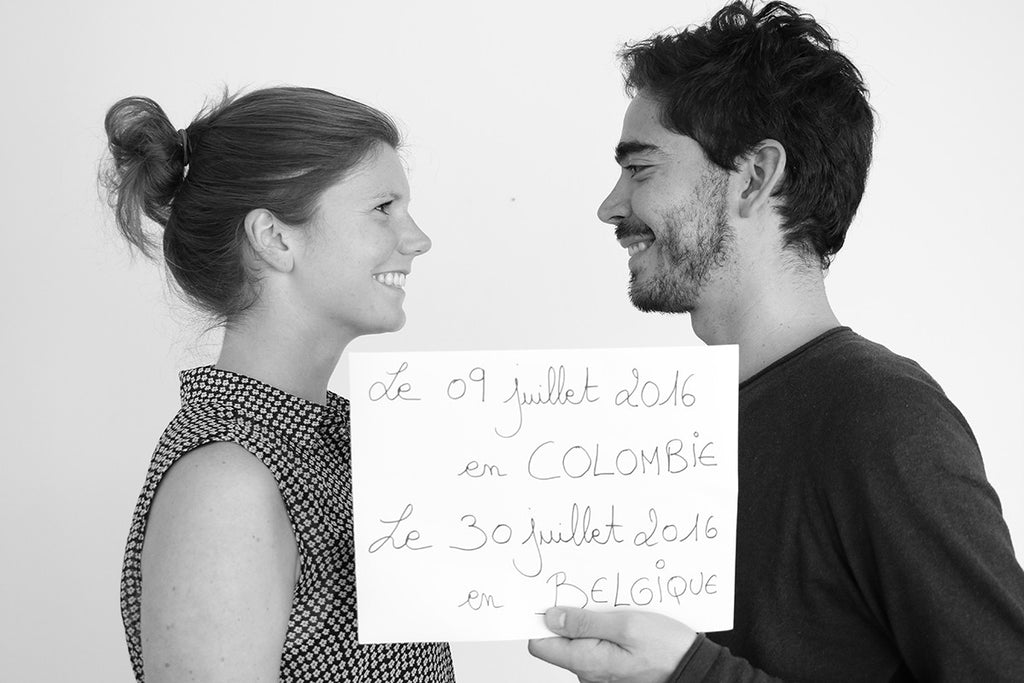 Le 09 juillet 2016
en COLOMBiE
Le 30 juillet 2016
en BELGiQUE